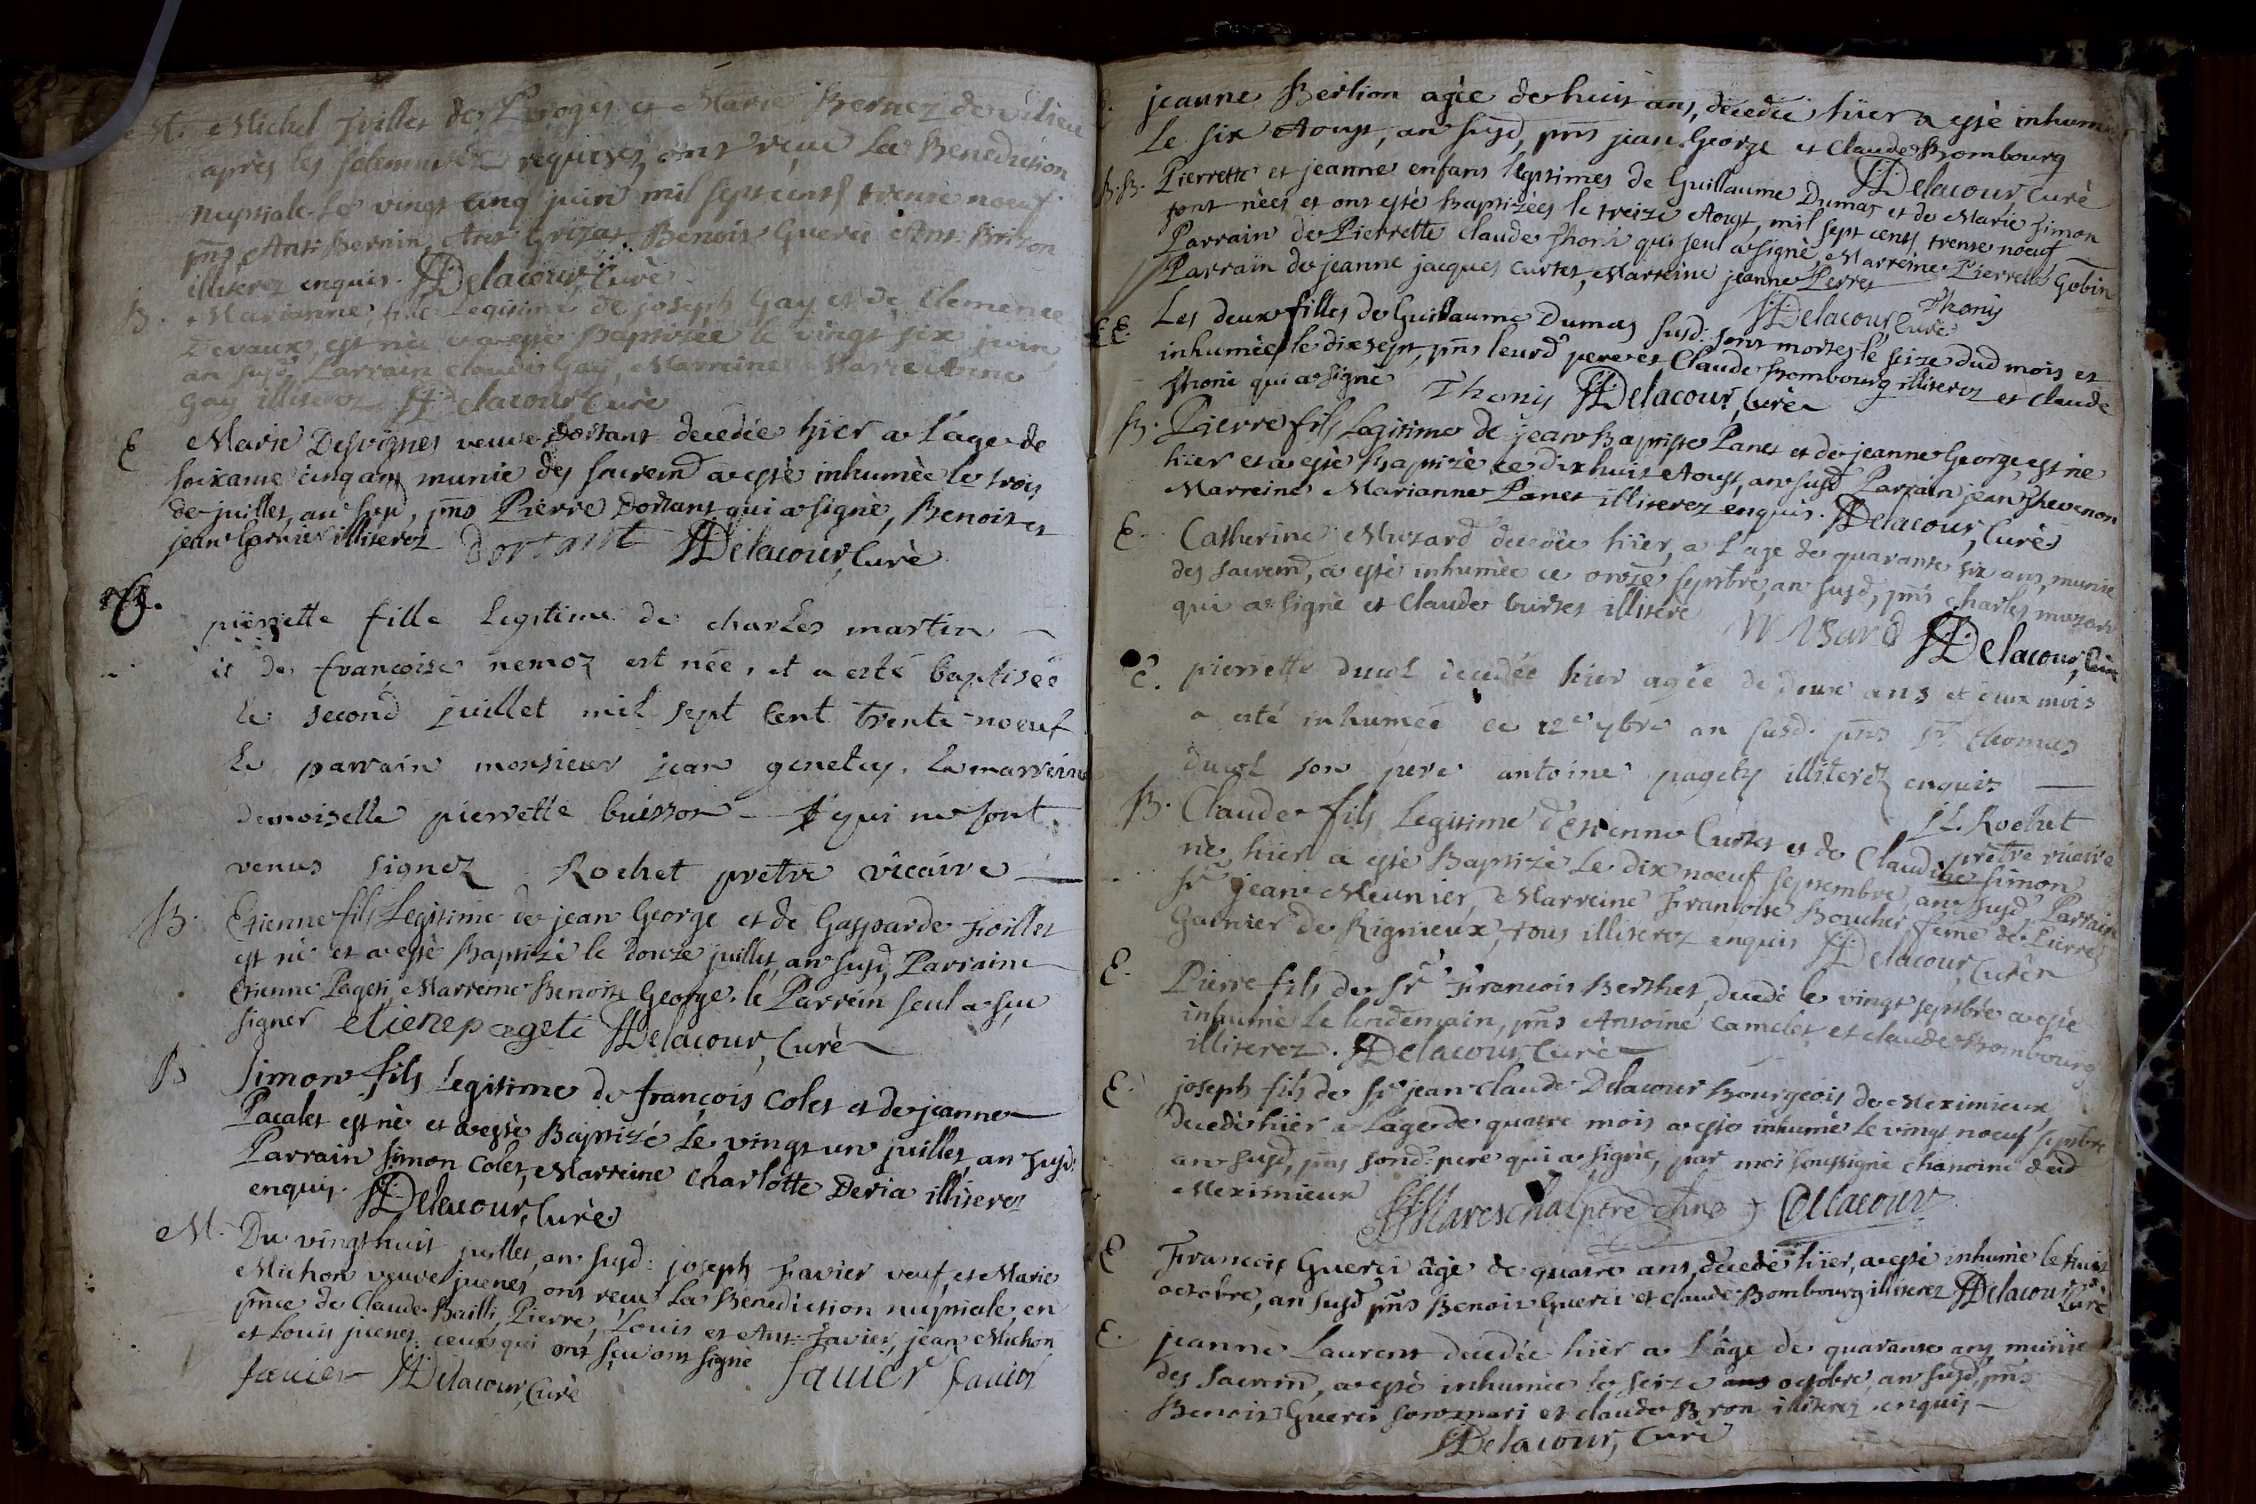 M. Michel Juillet de Peroges et Marie Bernez de vilieu
après les solemnitéz requises, ont reçue La Benediction
nuptiale le vingt cinq juin mil sept cents trente noeuf
pns Ant: Bernin, Ant: Grizat Benoit Guerci Ant: Brison
illiterez enquis. Delacour, Curè
B. Marianne fille Legitime de joseph Gay et de Clemence
Devaux est née et a esté Baptisée le vingt six juin
an susd: Parrain claude Gay, Marreine Marie Anne
Gay illiterez Delacour, Curè
E Marie Desvignes veuve Dortant decedée hier a L'age de
soixante cinq ans munie des sacremd a estè inhumèe le trois
de juillet, an susd, pns Pierre Dortant qui a signè, Benoit et
jean Garnier illiterez Dortant Delacour, Curè
B. pierrette fille Legitime de charles martin
et de françoise nemoz est née, et a esté baptisée
le second juillet mil sept cent trente-noeuf
Le parrain monsieur jean genetey. La marreine
demoiselle pierrette buisson qui ne sont
venus signez Rochet pretre vicaire
B. Etienne fils Legitime de jean George et de Gasparde Joillet
est nè et a estè Baptizè le douze juillet, an susd, Parraine
Etienne Pageti, Marreine Benoite George. le Parrein seul a sçu
signer etienepageti Delacour, Curè
B Simon fils Legitime de françois Colet et de jeanne
Pacalet est nè et a estè Baptizè Le vingt un juillet, an susd:
Parrain simon Colet, Marreine Charlotte Deria illiterez
enquis. Delacour, Curè
M. Du vingt huit juillet, an susd: joseph Favier veuf, et Marie
Michon veuve juenet, ont recu La Benediction nuptiale, en
pnce de Claude Bailli, Pierre, Louis et Ant: Favier, jean Michon
et Louis juenet: ceux qui ont sçu ont signè
favier Delacour, Curè favier favier
E. jeanne Bertion agèe de huit ans, decedée hier a estè inhumée
Le six Aougt, an susd, pns jean George et Claude Bombourg
Delacour, Curè
B.B. Pierrette et jeanne enfans legitimes de Guillaume Dumas et de Marie simon
sont nèes et ont estè Baptizèes le treize Aougt, mil sept cents trente noeuf
Parrain de Pierrette Claude Thoni qui seul a signè, Marreine Pierrette Gobin
Parrain de jeanne jacques Curtet, Marreine jeanne Perret
Delacour, Curè Thoniy
E.E. Les deux filles de Guillaume Dumas susd: sont mortes le seize dud mois et
inhumèes le dixsept, pns leurd pere et Claude Bombourg illiterez et claude
Thoni qui a signè Thoniy Delacour, Curè
B. Pierre fils Legitime de jean Baptiste Panet et de jeanne George, est nè
hier et a estè Baptizè ce dixhuit Aougt, an susd Parrain jean Thevenon
Marreine Marianne Panet illiterez enquis. Delacour, Curè
E. Catherine Muzard decedèe hier, a L'age de quarante six ans, munie
des sacremd, a estè inhumèe ce onze septbre, an susd, pns charles muzard
qui a signè et Claude Curtet illiterè Musard Delacour, Curè
E. pierrette ducol decedée hier agée de deux ans et deux mois
a esté inhumée ce 12e 7bre an susd. pns sr. thomas
ducol son pere antoine pagety illiterez enquis
JL. Rochet
pretre vicaire
B. Claude fils Legitime d'Etienne Curtet et de Claudine simon
nè, hier a estè Baptizè Le dix noeuf septembre, an susd, Parrain
sr jean Meunier, Marreine Francoise Boucher feme de Pierre
Garnier de Rignieux, tous illiterez enquis Delacour, Curè
E. Pierre fils de sr Francois Berthet, decedè le vingt septbre a estè
inhumè Le lendemain, pns Antoine Camelet, et claude Bombourg
illiterez. Delacour, Curè
E. joseph fils de sr jean claude Delacour Bourgeois de Meximieux,
decedè hier a L'age de quatre mois a estè inhumè Le vingt noeuf septbre
an susd, pns sond: pere qui a signè, par moi soussignè chanoine dud
Meximieux
Mareschal ptre chne Delacour
E Francois Guerci âgè de quatre ans, decedè hier, a estè inhumè le huit
octobre, an susd pns Benoit Guerci et claude Bombourg illiterez Delacour, Curè
E. jeanne Laurent decedèe hier a L'âge de quarante ans, munie
des sacrem, a estè inhumèe le seize octobre, an susd, pns
Benoit Guerci son mari et claude Bron illiterez enquis
Delacour, Curè